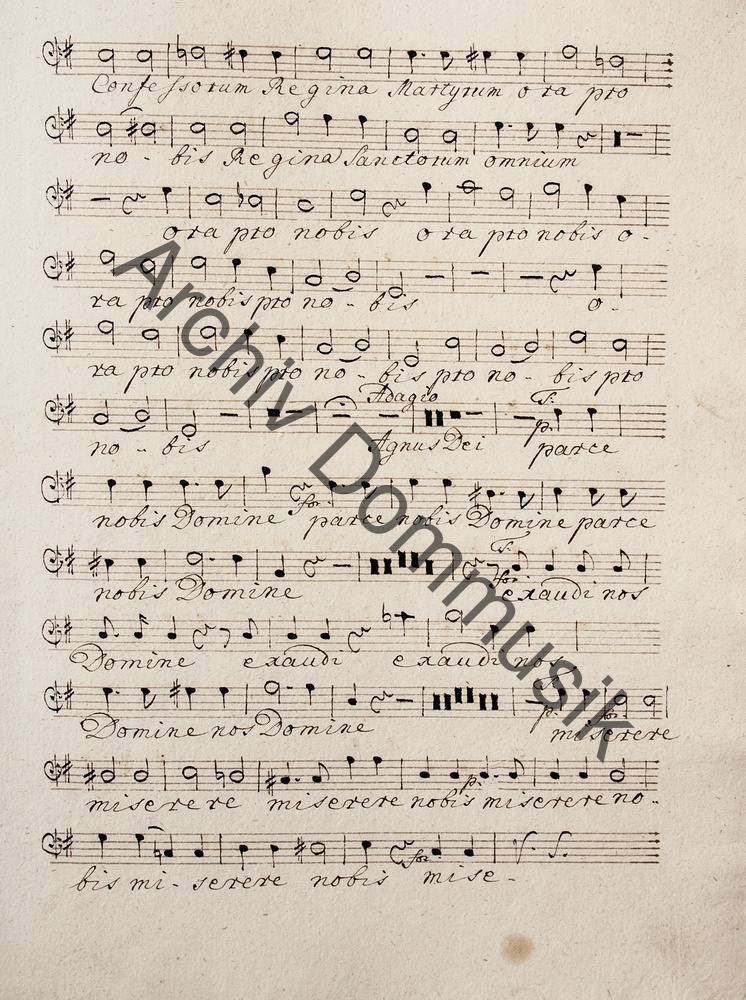 Confessorum Regina Martyrum ora pro
no - bis Regina Sanctorum omnium
ora pro nobis ora pro nobis o-
ra pro nobis pro no - bis o-
ra pro nobis pro no - bis pro no - bis pro
Adagio T:
no - bis Agnus Dei p. parce
nobis Domine for: parce nobis Domine parce
T:
nobis Domine for: exaudi nos
Domine exaudi exaudi nos
T:
Domine nos Domine p: for: miserere
miserere miserere nobis p: miserere no-
bis mi - serere nobis for: mise-
V. S.
Archiv Dommusik